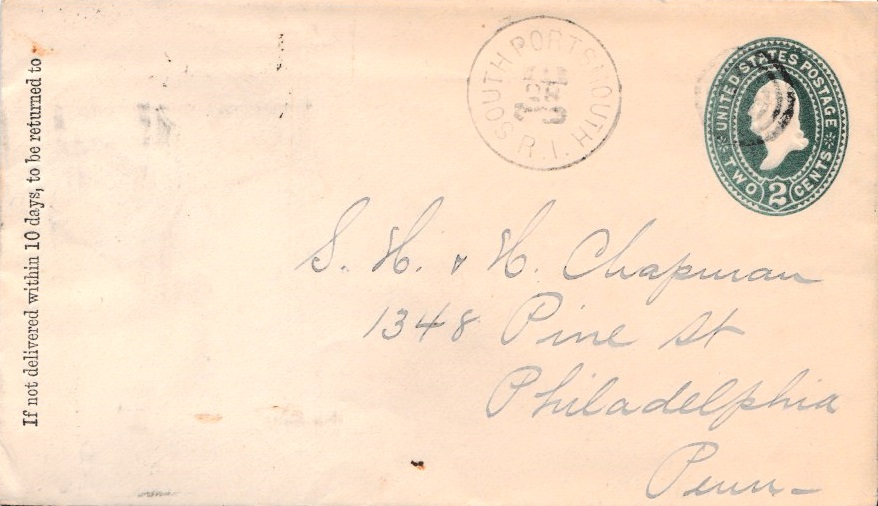 If not delivered within 10 days, to be returned to
SOUTH PORTSMOUTH
R.I.
UNITED STATES POSTAGE
TWO 2 CENTS
S. H. & H. Chapman
1348 Pine St
Philadelphia
Penn-